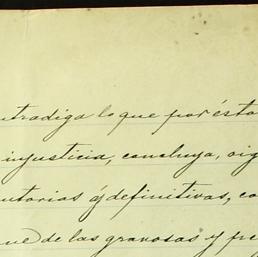 ntradiga lo que por ésto
injusticia, concluya, oig
utorias ó definitivas, co
ue de las gravosas y pe